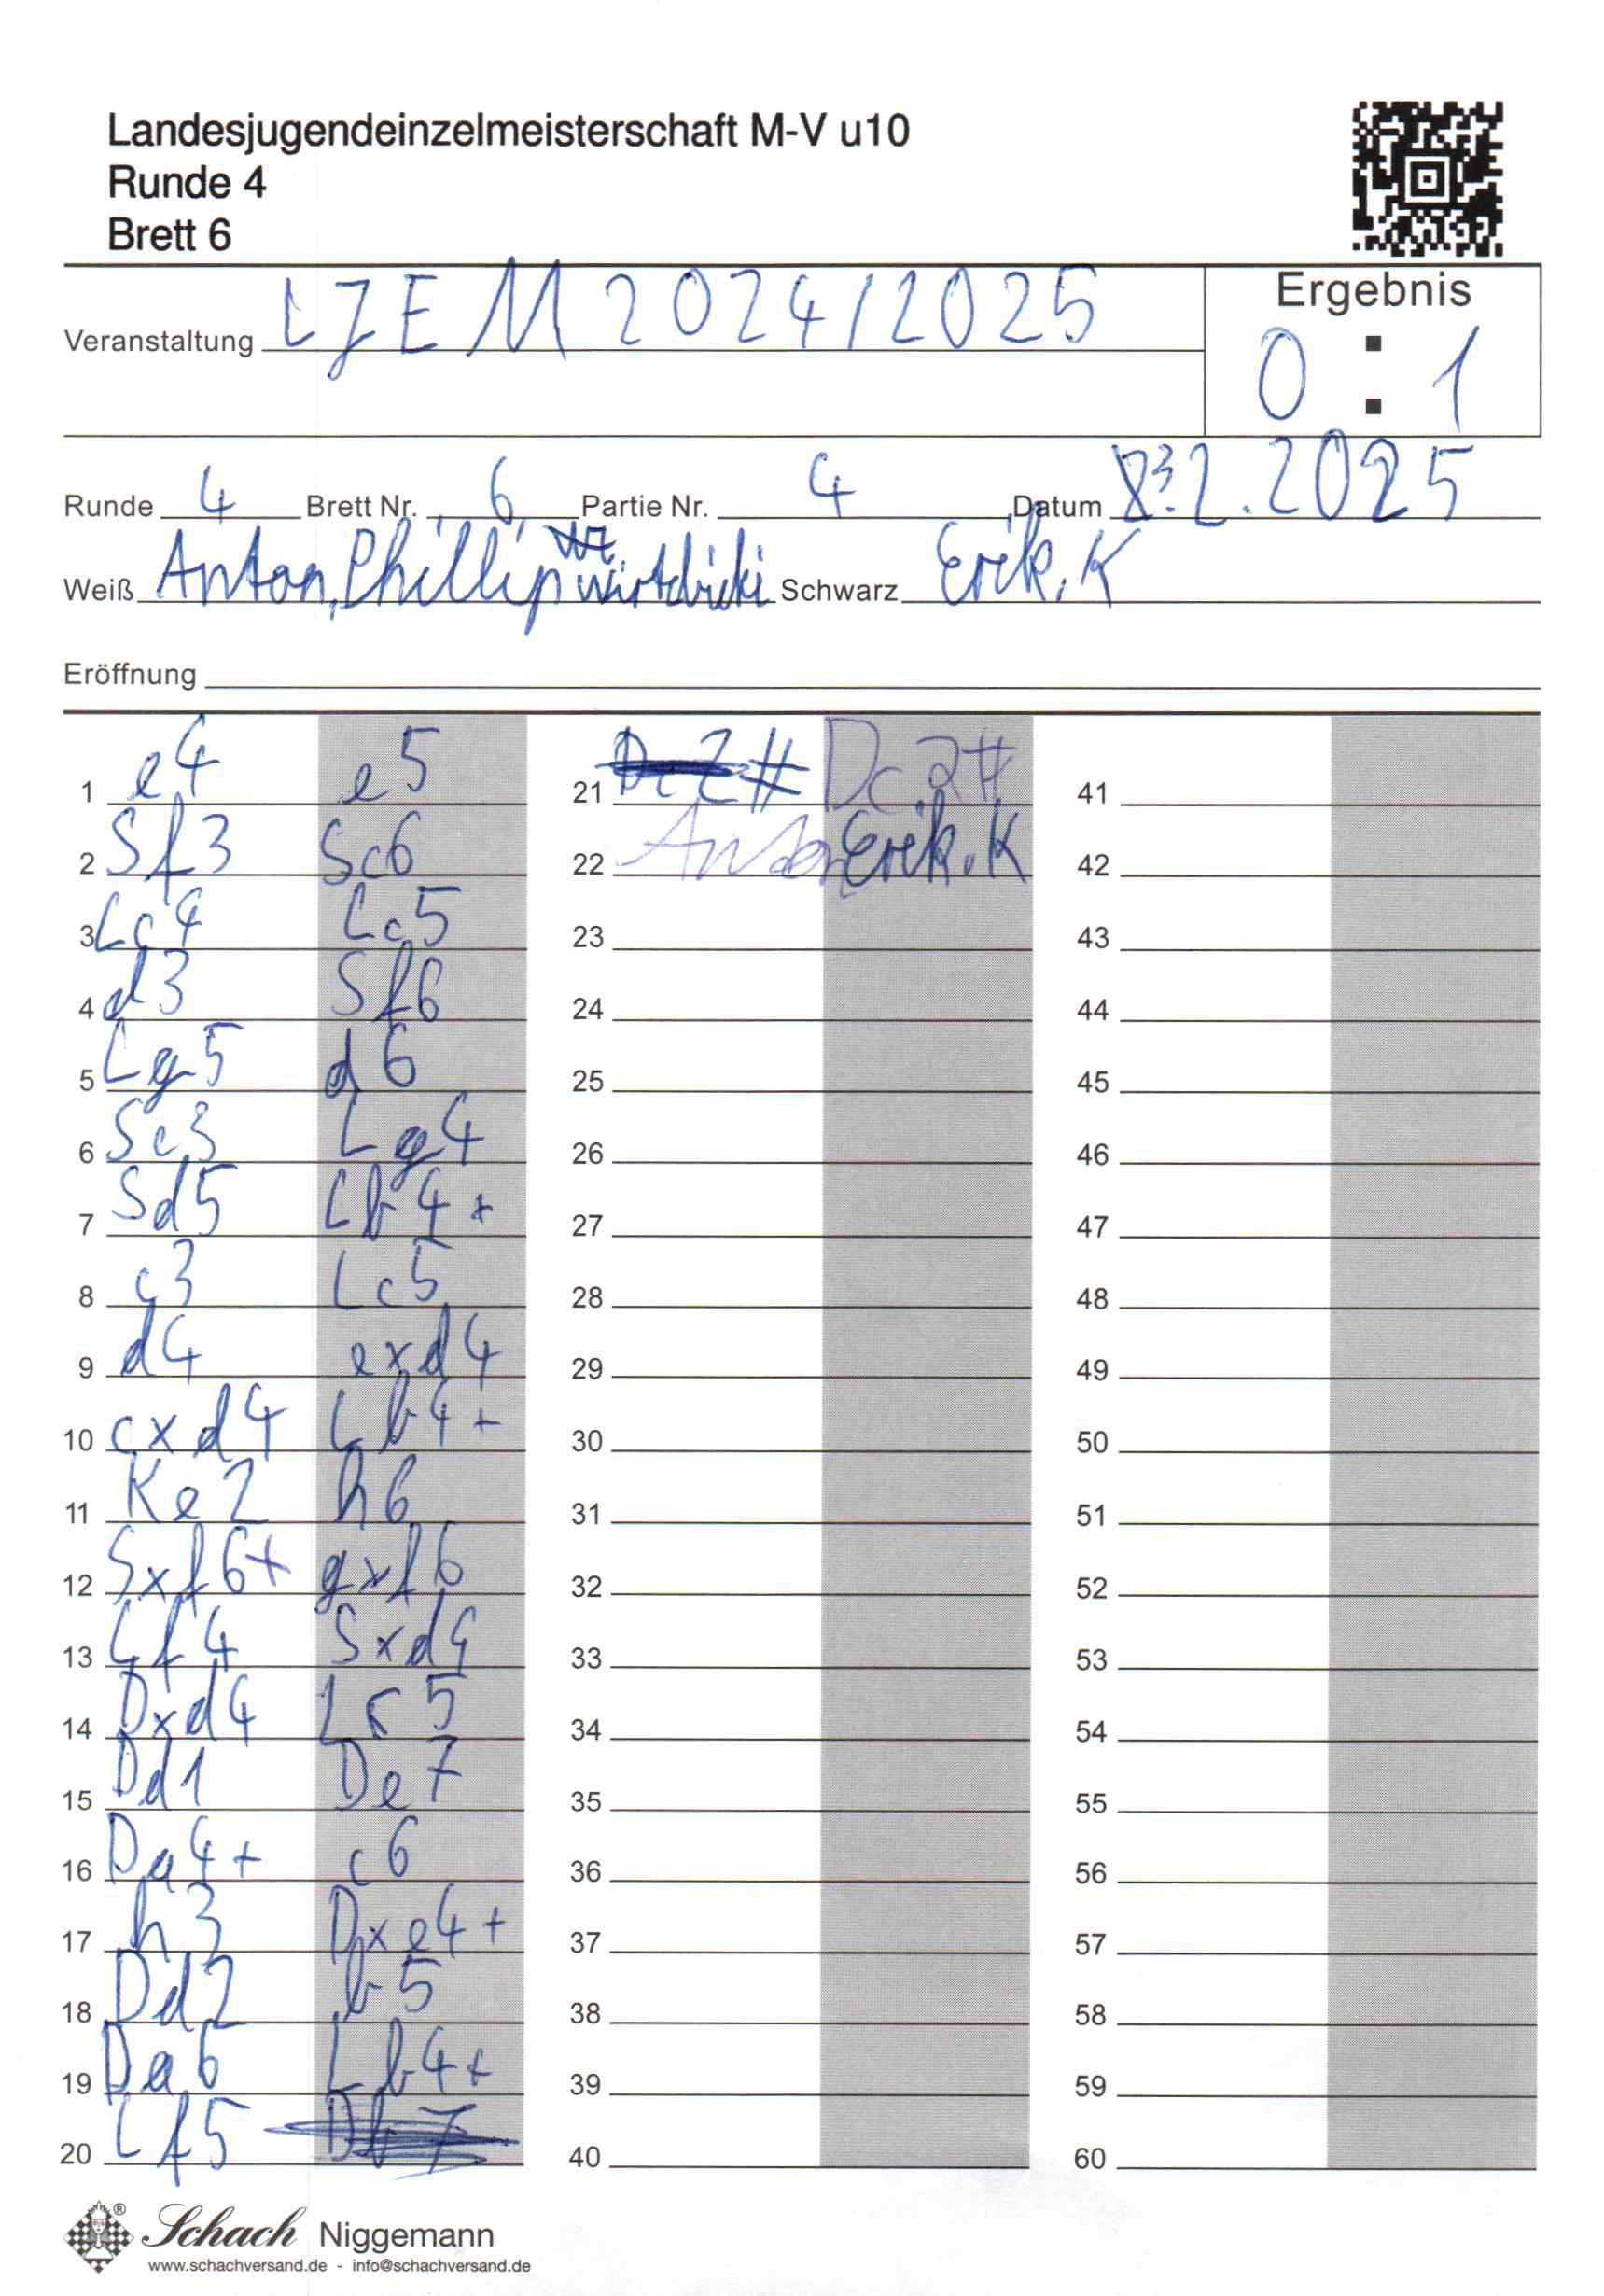 Landesjugendeinzelmeisterschaft M-V u10
Runde 4
Brett 6
Veranstaltung LJEM 2024/2025
Ergebnis
0 : 1
Runde 4 Brett Nr. 6 Partie Nr. 4 Datum 2.2025
Weiß Anton, Phillip Schwarz Erik.K
Eröffnung
1 e4 e5 21 Dc2# 41
2 Sf3 Sc6 22 Anton Erik.K 42
3 Lc4 Lc5 23 43
4 d3 Sf6 24 44
5 Lg5 d6 25 45
6 Sc3 Lg4 26 46
7 Sd5 Lb4+ 27 47
8 c3 Lc5 28 48
9 d4 exd4 29 49
10 cxd4 Lb4+ 30 50
11 Ke2 h6 31 51
12 Sxf6+ gxf6 32 52
13 Lf4 Sxd4 33 53
14 Dxd4 Lc5 34 54
15 Dd1 De7 35 55
16 Da4+ c6 36 56
17 h3 Dxe4+ 37 57
18 Dd2 b5 38 58
19 Da6 Lb4+ 39 59
20 Lf5 40 60
Schach Niggemann
www.schachversand.de - info@schachversand.de